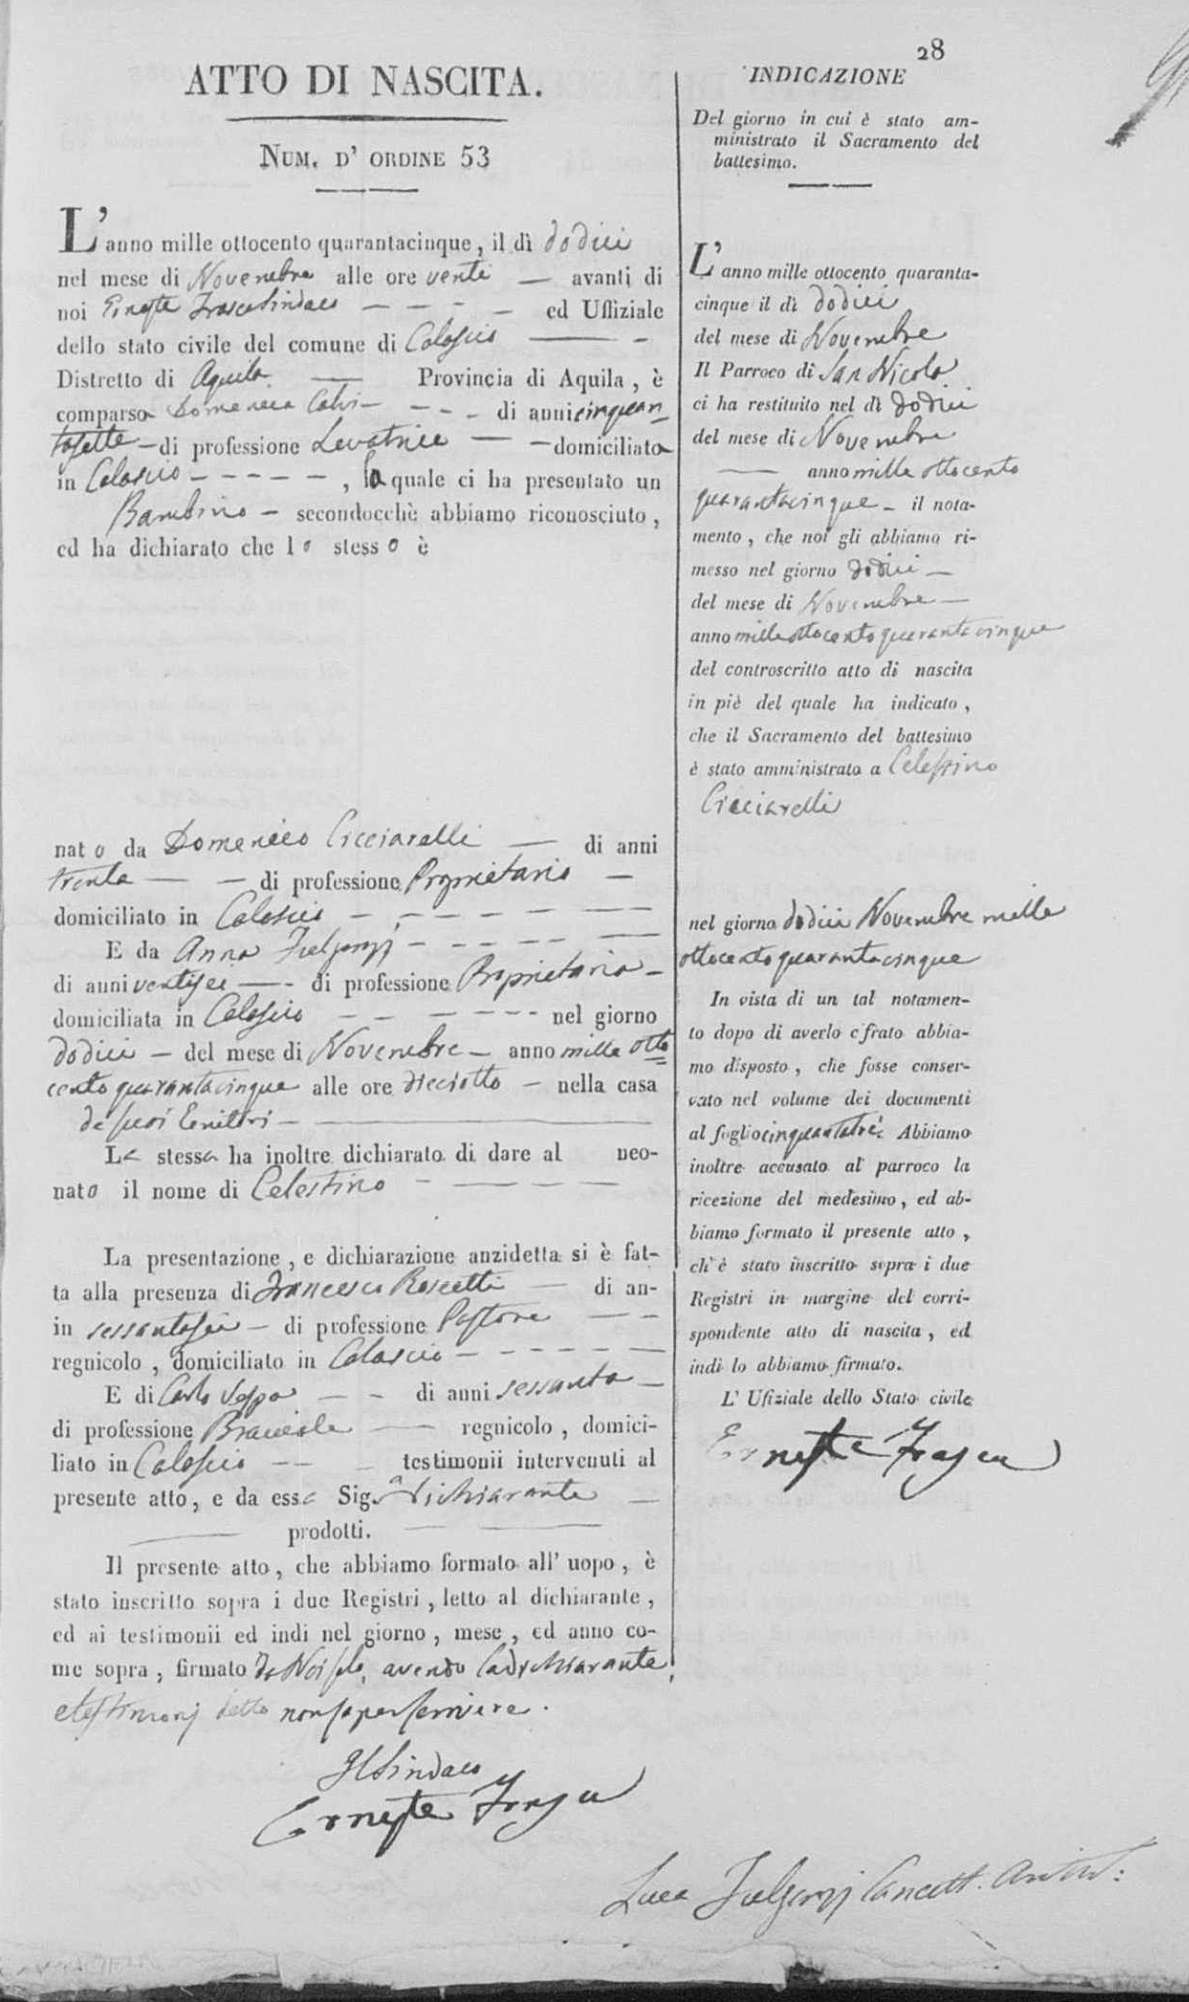 28
ATTO DI NASCITA.
NUM. D' ORDINE 53
L'anno mille ottocento quarantacinque, il dì dodici
nel mese di Novembre alle ore venti — avanti di
noi Erneste Frasca Sindaco — — — — ed Uffiziale
dello stato civile del comune di Calascio — —
Distretto di Aquila — Provincia di Aquila, è
comparsa Domenica — — — di anni cinquan=
tasette — di professione Levatrice — — domiciliata
in Calascio — — — — —, la quale ci ha presentato un
Bambino — secondocchè abbiamo riconosciuto,
ed ha dichiarato che lo stesso è
nato da Domenico Cicciarelli — di anni
trenta — — di professione Proprietario —
domiciliato in Calascio — — — — — —
E da Anna Fulgenzj — — — — — —
di anni ventisei — — di professione Proprietaria —
domiciliata in Calascio — — — — — — nel giorno
dodici — del mese di Novembre — anno mille otto
cento quarantacinque alle ore dieciotto — nella casa
de suoi Genitori — —
La stessa ha inoltre dichiarato di dare al neo-
nato il nome di Celestino — — — —
La presentazione, e dichiarazione anzidetta si è fat-
ta alla presenza di Francesco Roscetti — di an-
in sessantasei — di professione Pastore — —
regnicolo, domiciliato in Calascio — — — — — —
E di Carlo — — di anni sessanta —
di professione Bracciale — regnicolo, domici-
liato in Calascio — — — testimonii intervenuti al
presente atto, e da essa Sig.a dichiarante —
— prodotti. — —
Il presente atto, che abbiamo formato all' uopo, è
stato inscritto sopra i due Registri, letto al dichiarante,
ed ai testimonii ed indi nel giorno, mese, ed anno co-
me sopra, firmato da Noi solo, avendo la dichiarante,
e testimonj detto non saper scrivere.
Il Sindaco
Erneste Frasca
Luca Fulgenzj Cancell.
INDICAZIONE
Del giorno in cui è stato am-
ministrato il Sacramento del
battesimo.
L'anno mille ottocento quaranta-
cinque il dì dodici
del mese di Novembre
Il Parroco di San Nicola
ci ha restituito nel dì dodici
del mese di Novembre
— anno mille ottocento
quarantacinque — il nota-
mento, che noi gli abbiamo ri-
messo nel giorno dodici —
del mese di Novembre —
anno mille ottocento quarantacinque
del controscritto atto di nascita
in piè del quale ha indicato,
che il Sacramento del battesimo
è stato amministrato a Celestino
Cicciarelli
nel giorno dodici Novembre mille
ottocento quarantacinque
In vista di un tal notamen-
to dopo di averlo cifrato abbia-
mo disposto, che fosse conser-
vato nel volume dei documenti
al foglio cinquantatrè. Abbiamo
inoltre accusato al parroco la
ricezione del medesimo, ed ab-
biamo formato il presente atto,
ch'è stato inscritto sopra i due
Registri in margine del corri-
spondente atto di nascita, ed
indi lo abbiamo firmato.
L' Ufiziale dello Stato civile
Erneste Frasca